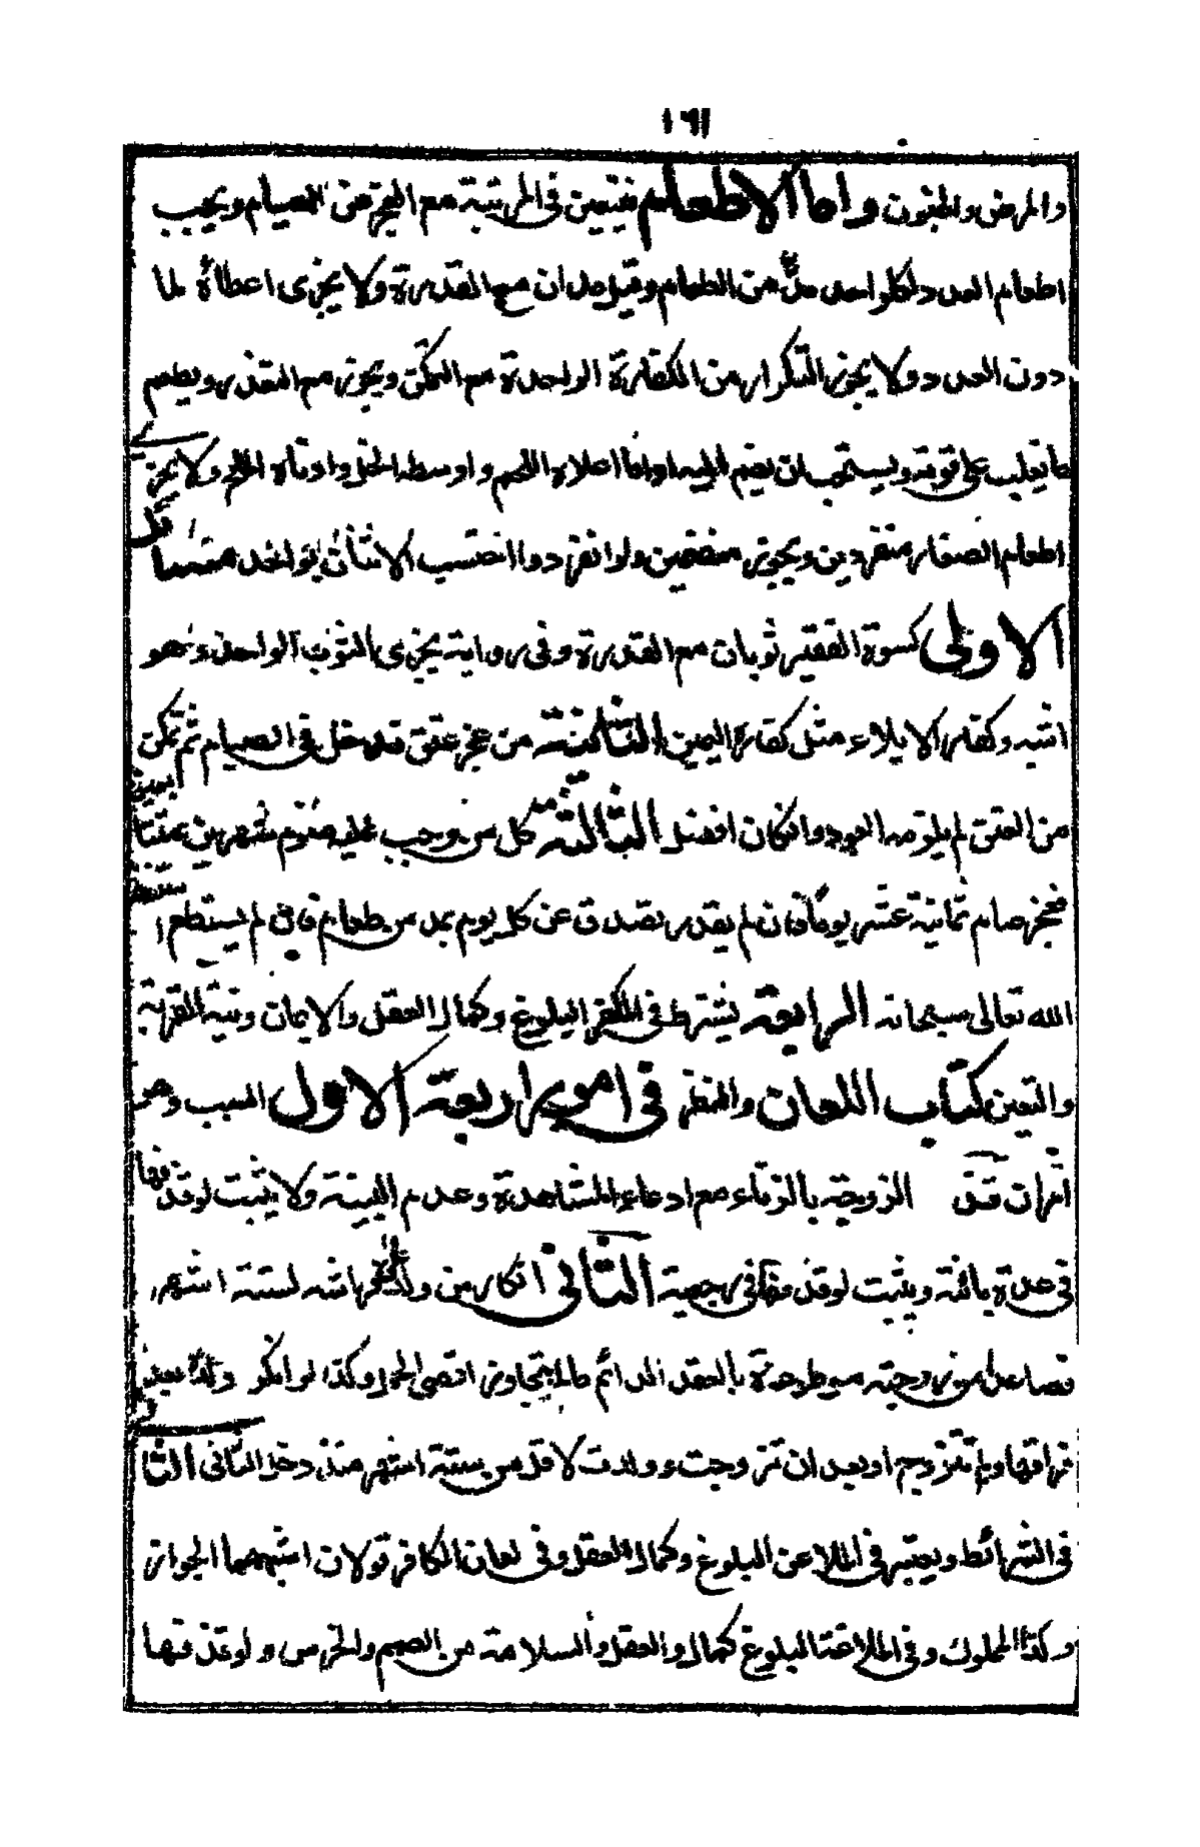 ١٦١
والمرض والجنون واما الاطعام فيتعين في المرتبة مع العجز عن الصيام ويجب
اطعام العدد لكل واحد مدٌّ من الطعام وقيل مدان مع القدرة ولا يجزى اعطاؤه لما
دون العدد ولا يجوز التكرار من الكفارة الواحدة مع التمكن ويجوز مع التعذر ويطعم
ما يغلب على قوته ويستحب ان يضم اليه اداما اعلاه اللحم واوسطه الخل وادناه الملح ولا يجزى
اطعام الصغار منفردين ويجوز منضمين ولو انفردوا احتسب الاثنان بواحد مسائل
الاولى كسوة الفقير ثوبان مع القدرة وفي رواية يجزى الثوب الواحد وهو
اشبه وكفارة الايلاء مثل كفارة اليمين الثانية من عجز عن عتق فدخل في الصيام ثم تمكن
من العتق لم يلزمه العود وان كان افضل الثالثة كل من وجب عليه صوم شهرين متتابعين
فعجز صام ثمانية عشر يوما فان لم يقدر تصدق عن كل يوم بمد من طعام فان لم يستطع استغفر
الله تعالى سبحانه الرابعة يشترط في المكفر البلوغ وكمال العقل والايمان ونية القربة
والتعيين كتاب اللعان والنظر في امور اربعة الاول السبب وهو
امران قذف الزوجة بالزناء مع ادعاء المشاهدة وعدم البينة ولا يثبت لو قذفها
في عدة بائنة ويثبت لو قذفها في رجعية الثاني انكار من ولد على فراشه لستة اشهر
فصاعدا من زوجته موطوءة بالعقد الدائم ما لم يتجاوز اقصى الحمل وكذا لو انكر ولدًا بعد
فراقها ولم تتزوج او بعد ان تزوجت وولدت لاقل من ستة اشهر منذ دخل الثاني الثاني
في الشرائط ويعتبر في الملاعن البلوغ وكمال العقل وفي لعان الكافر قولان اشبههما الجواز
وكذا المملوك وفي الملاعنة البلوغ كمال والعقل والسلامة من الصمم والخرس ولو قذفها